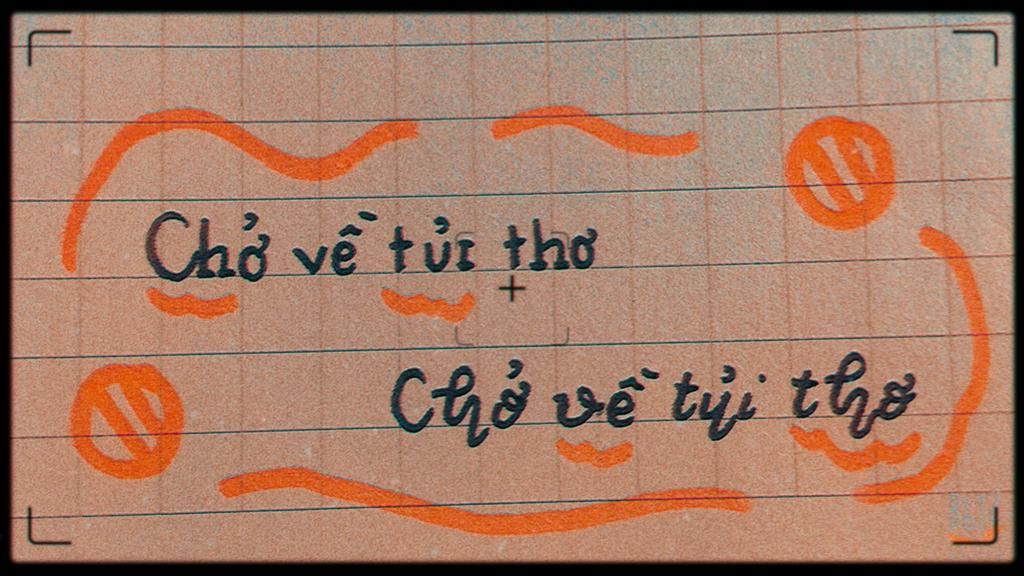 Chở về tủi thơ
Chở về tủi thơ